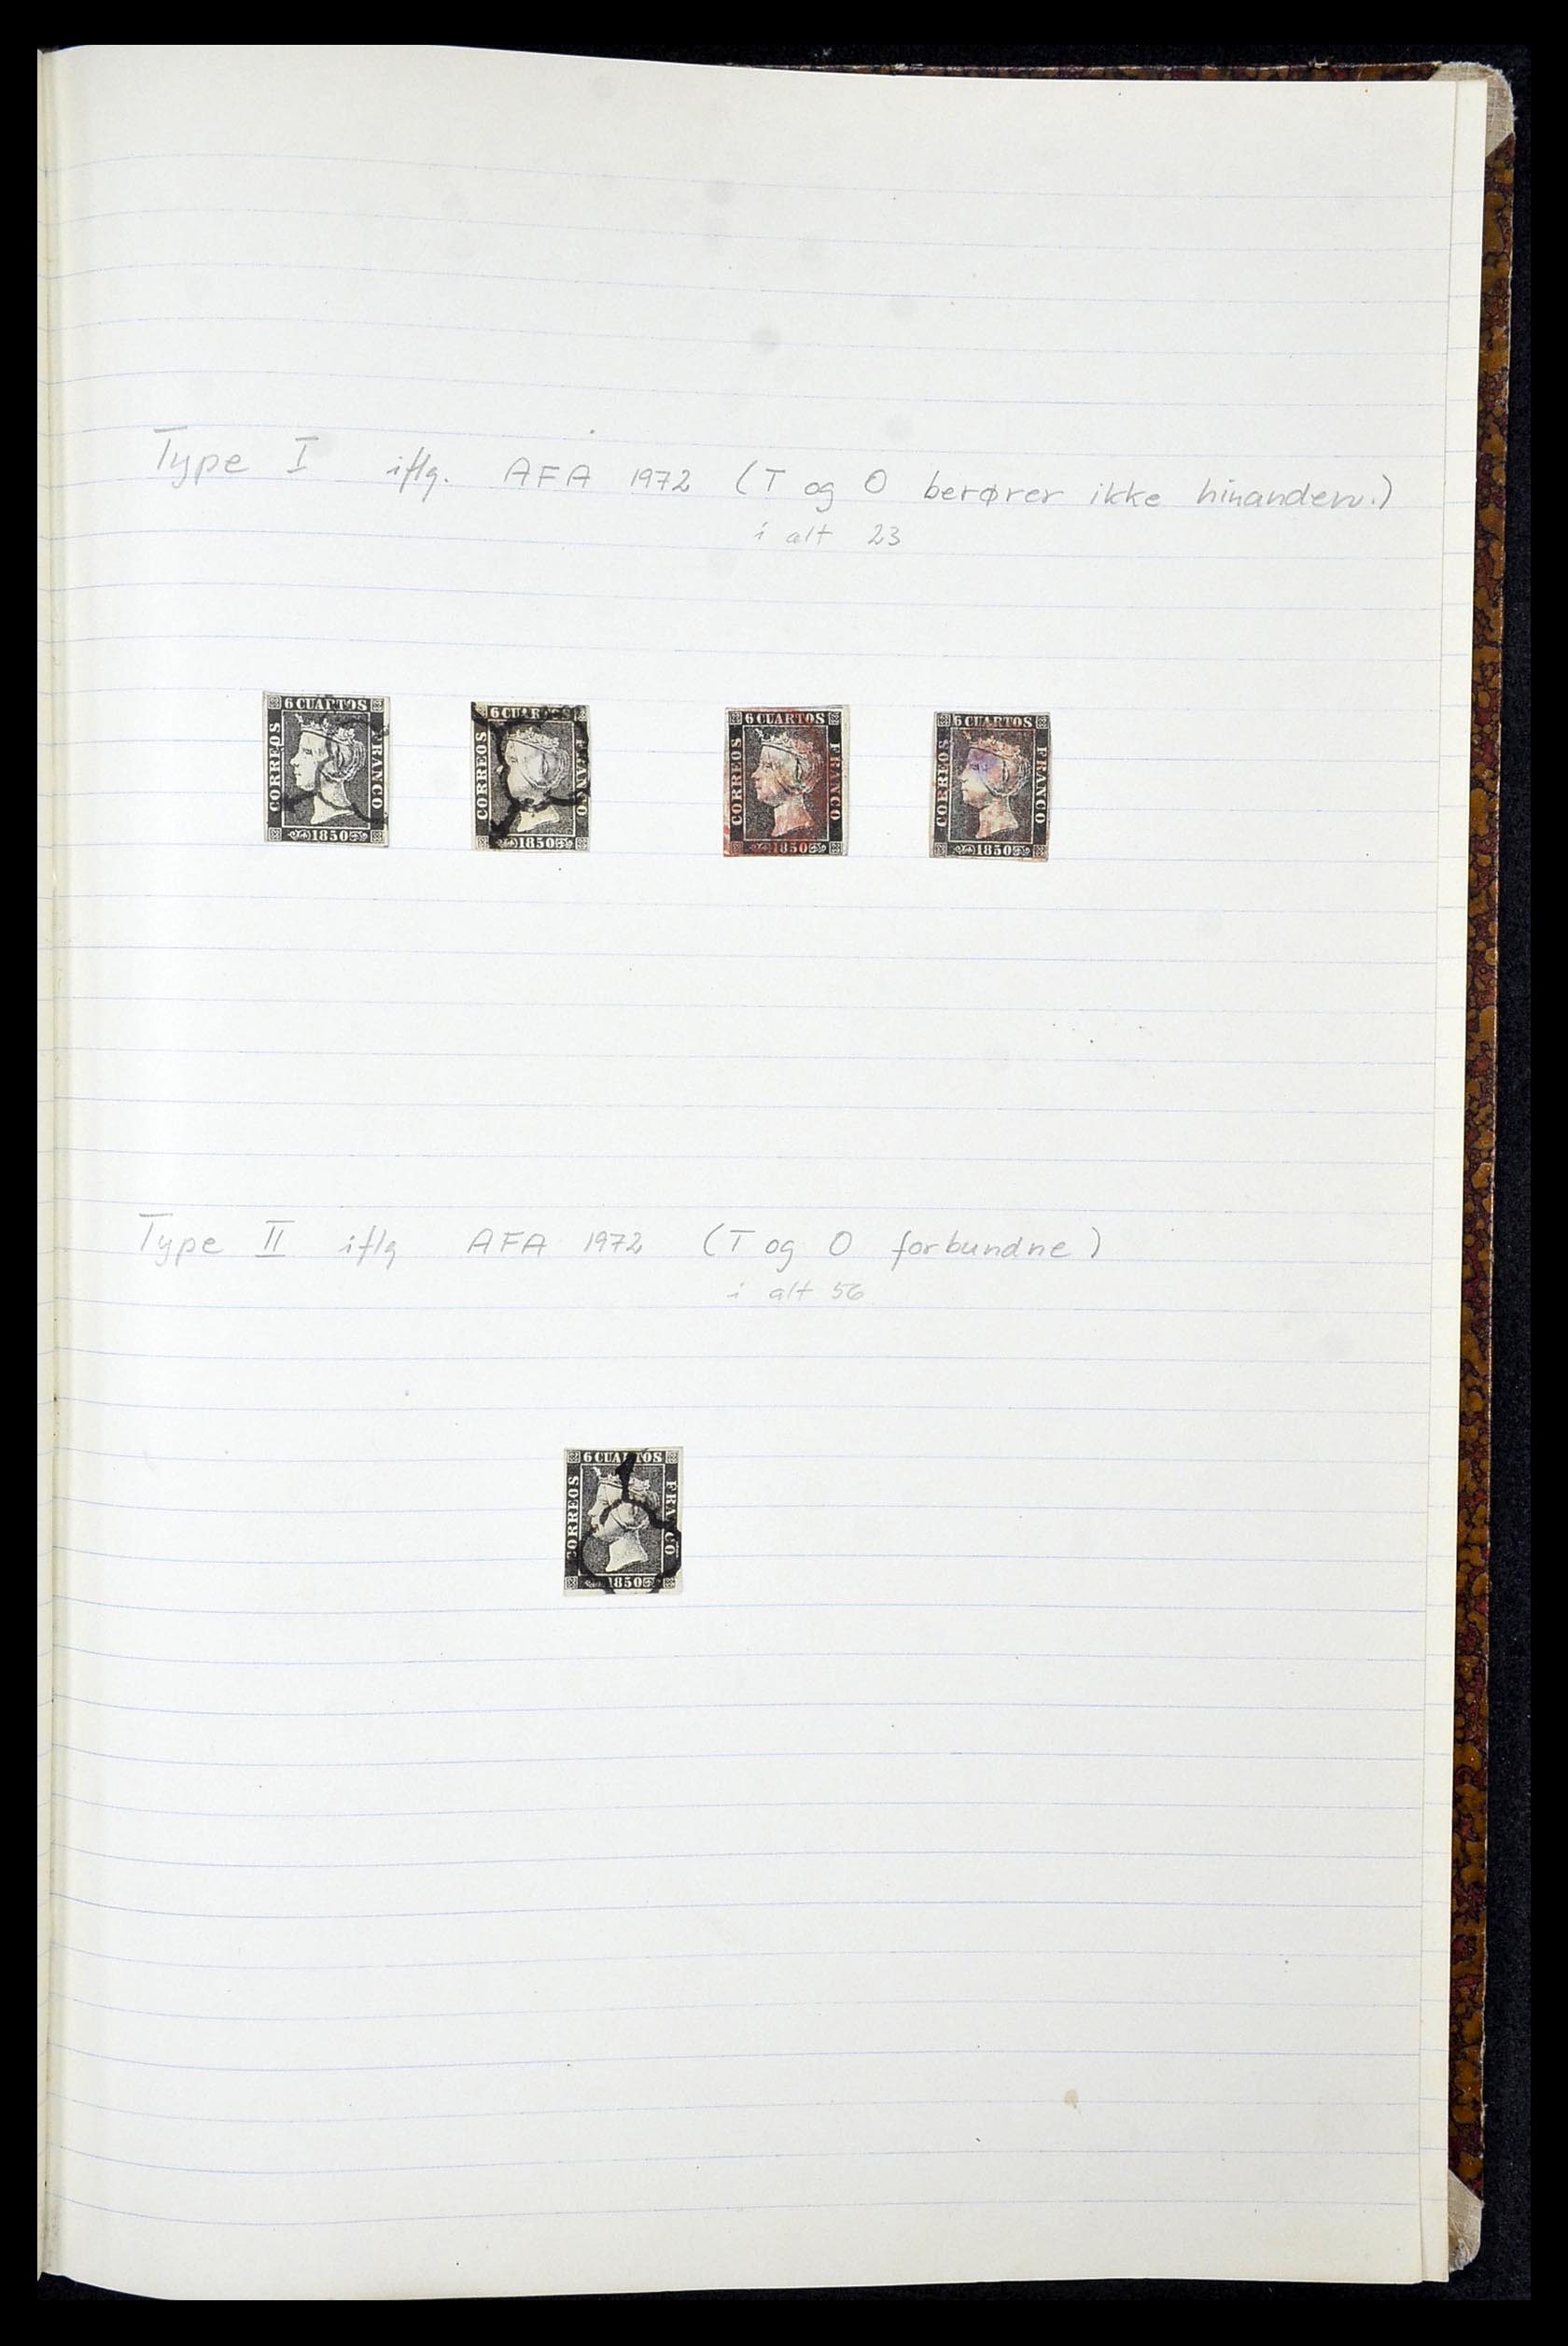 Type I iflg. AFA 1972 (T og O berører ikke hinanden.)
i alt 23
6 CUARTOS
CORREOS
FRANCO
1850
6 CUARTOS
CORREOS
FRANCO
1850
6 CUARTOS
CORREOS
FRANCO
1850
6 CUARTOS
CORREOS
FRANCO
1850
Type II iflg AFA 1972 (T og O forbundne)
i alt 56
6 CUARTOS
CORREOS
FRANCO
1850